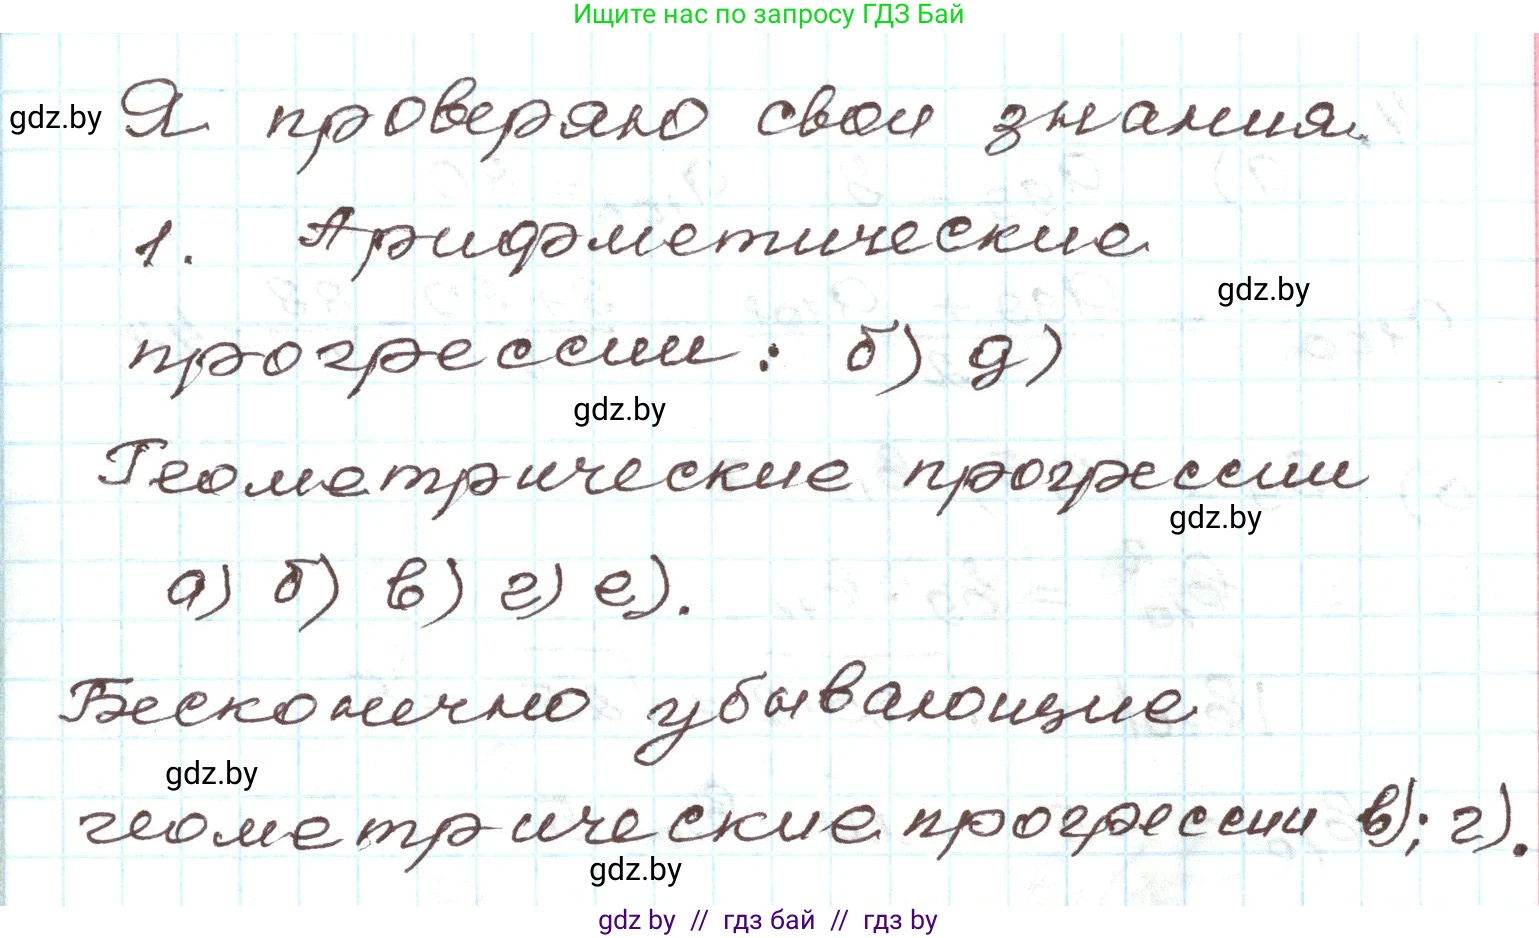 Ищите нас по запросу ГДЗ Бай
gdz.by Я проверяю свои знания.
1. Арифметические
gdz.by
прогрессии: б) д)
gdz.by
Геометрические прогрессии
gdz.by
а) б) в) г) е).
Бесконечно убывающие
gdz.by
геометрические прогрессии в); г).
gdz.by
gdz by // гдз бай // гдз by